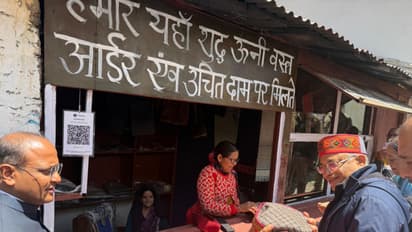 हमारे यहाँ शुद्ध ऊनी वस्त्र
आर्डर एवं उचित दाम पर मिलते